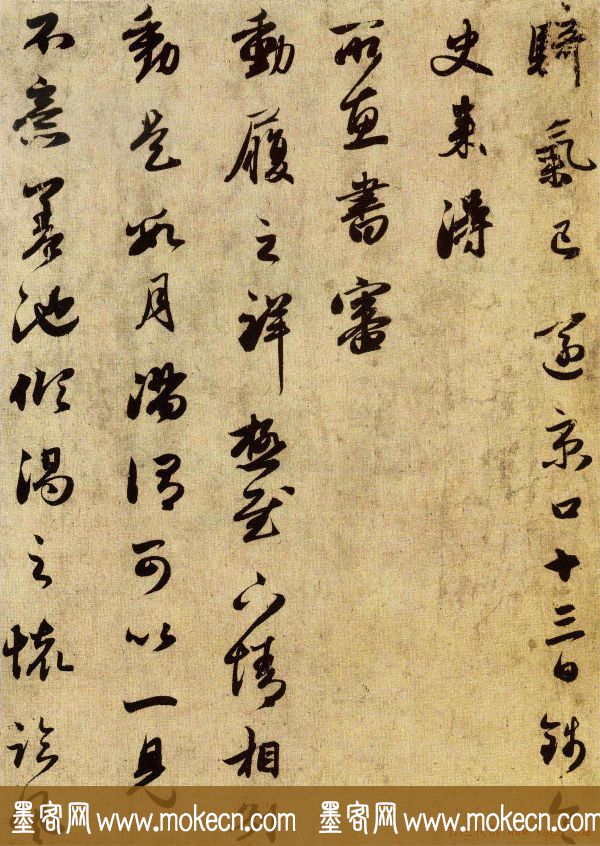 騎氣已過京口十三日錢
史來得
所惠書審
動履之詳極慰下情相別
動是數月滿謂可以一見
不意差池傾渴之懷
墨客网 www.mokecn.com 墨客网 www.mokecn.com